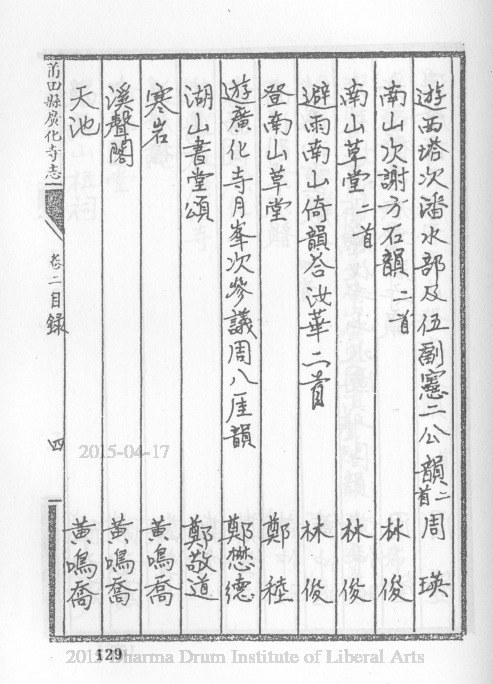 遊西塔次潘水部及伍副憲二公韻二首　周瑛
南山次謝方石韻二首　林俊
南山草堂二首　林俊
避雨南山倚韻荅汝華二首　林俊
登南山草堂　鄭稑
遊廣化寺月峯次參議周八厓韻　鄭懋德
湖山書堂頌　鄭敬道
寒岩　黃鳴喬
溪聲閣　黃鳴喬
天池　黃鳴喬
莆田縣廣化寺志　卷二目録　四
2015-04-17
129
Dharma Drum Institute of Liberal Arts